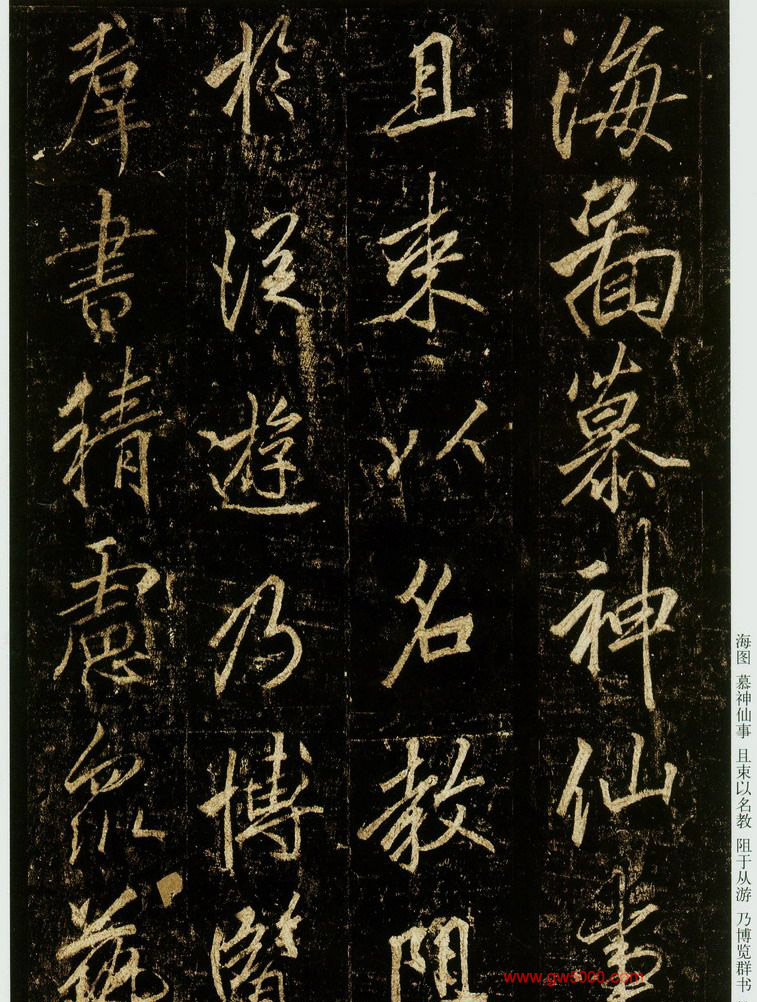 海啚慕神仙事
且束以名教阻
於従遊乃博覧
羣書精慮眾藝
海图 慕神仙事 且束以名教 阻于从游 乃博览群书
www.gw5000.com